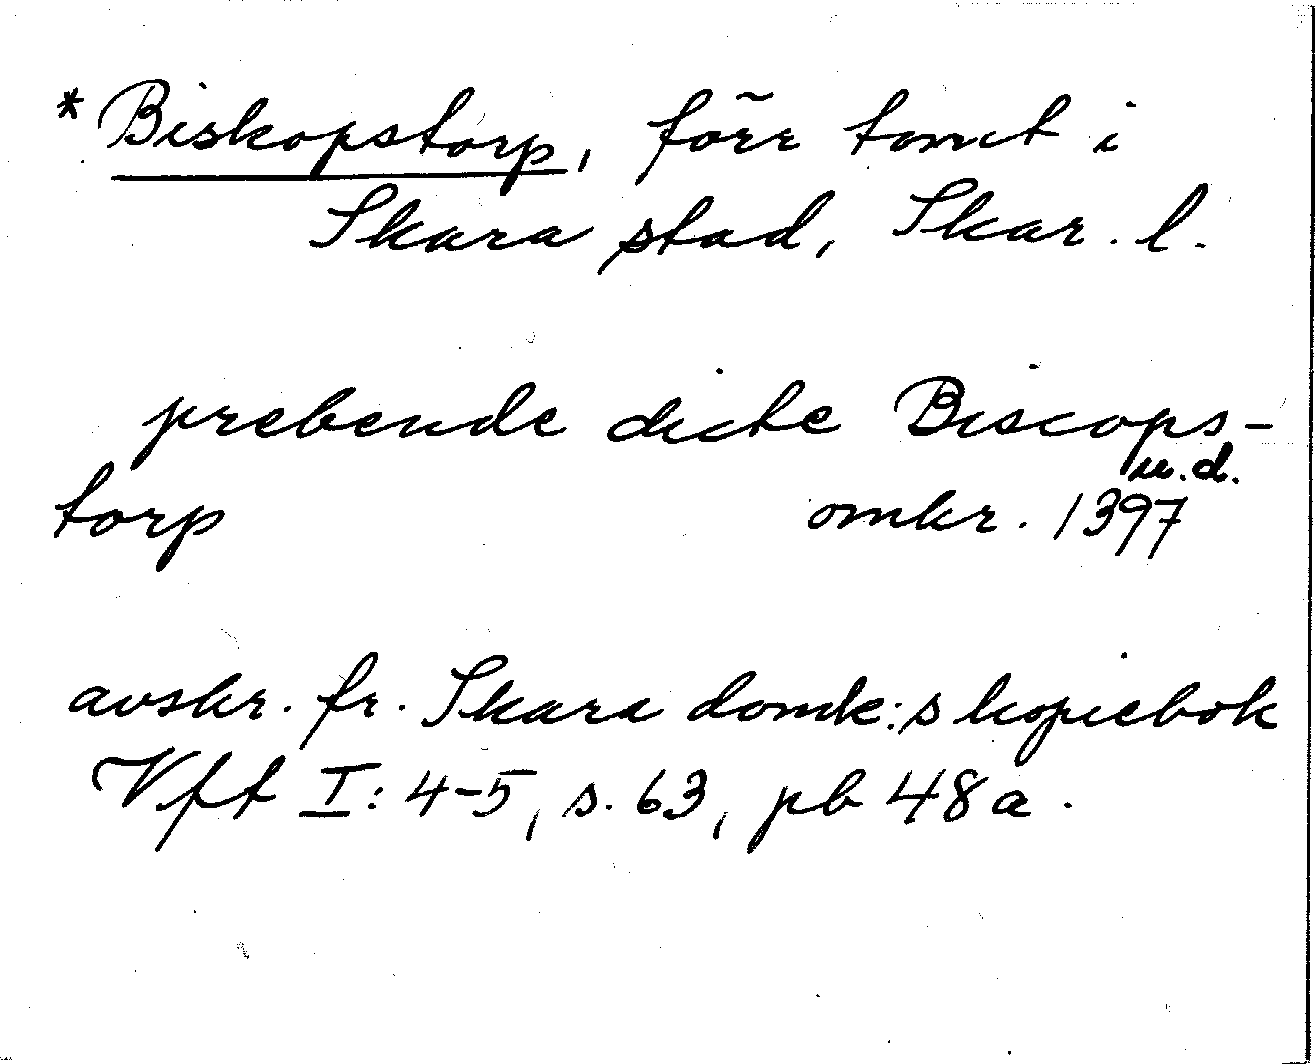 *Biskopstorp, förr tomt i
Skara stad, Skar. l.
prebende dicte Biscops-
torp omkr. 1397 u.d.
avskr. fr. Skara domk:s kopiebok
Vft I: 4-5, s. 63, pb 48a.